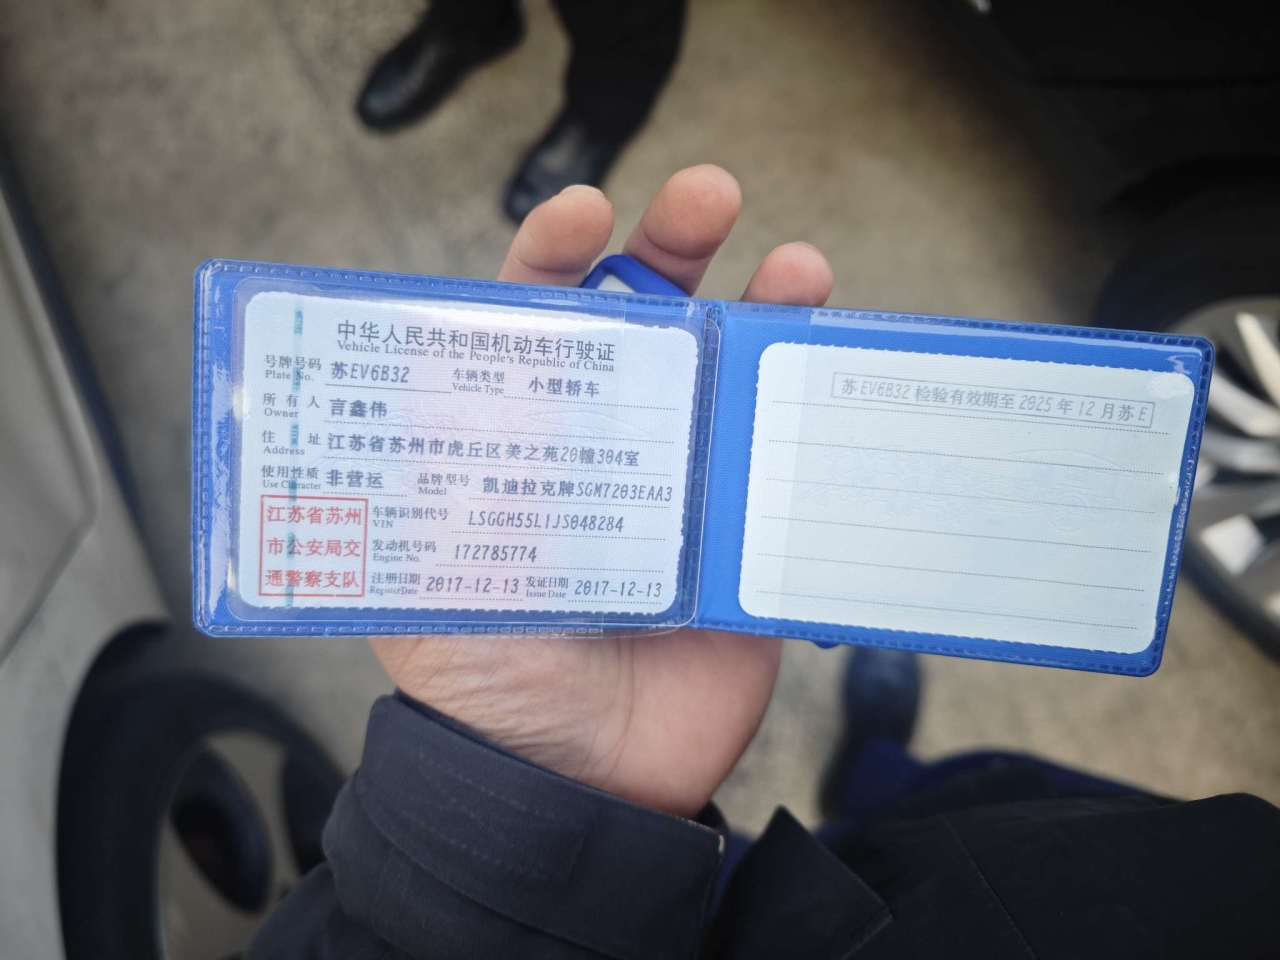 中华人民共和国机动车行驶证
Vehicle License of the People's Republic of China
号牌号码 苏EV6B32 车辆类型 小型轿车
Plate No. Vehicle Type
所有人 言鑫伟
Owner
住址 江苏省苏州市虎丘区美之苑20幢304室
Address
使用性质 非营运 品牌型号 凯迪拉克牌SGM7203EAA3
Use Character Model
江苏省苏州
市公安局交
通警察支队
车辆识别代号 LSGGH55L1JS048284
VIN
发动机号码 172785774
Engine No.
注册日期 2017-12-13 发证日期 2017-12-13
Register Date Issue Date
苏EV6B32 检验有效期至 2025 年 12 月苏 E